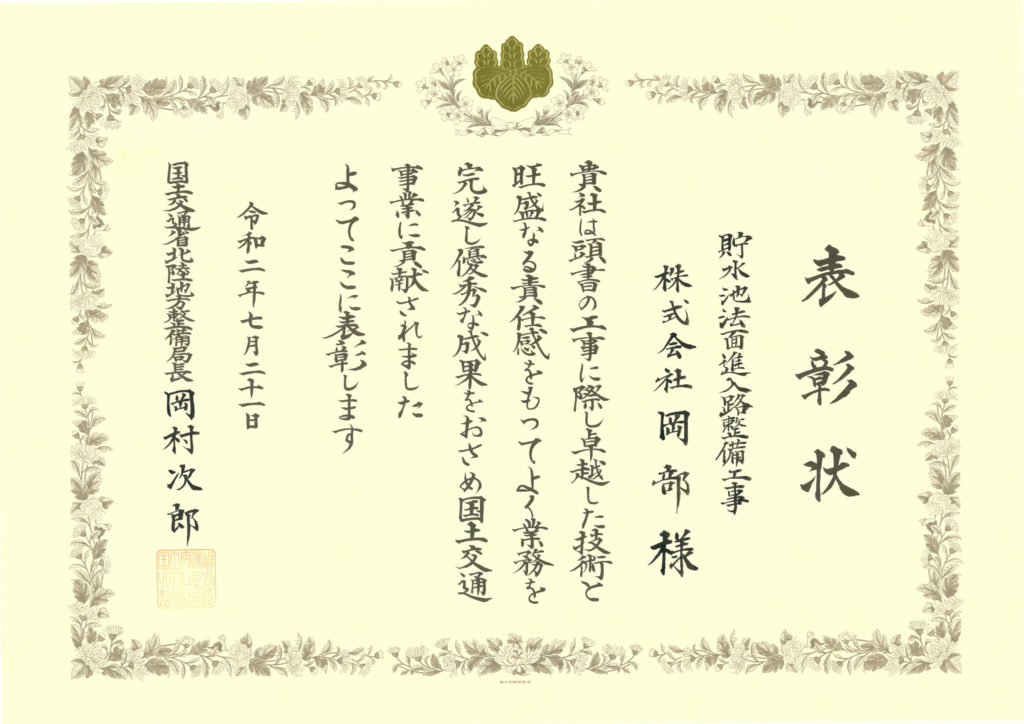 表彰状
貯水池法面進入路整備工事
株式会社岡部様
貴社は頭書の工事に際し卓越した技術と
旺盛なる責任感をもってよく業務を
完遂し優秀な成果をおさめ国土交通
事業に貢献されました
よってここに表彰します
令和二年七月二十一日
国土交通省北陸地方整備局長 岡村次郎